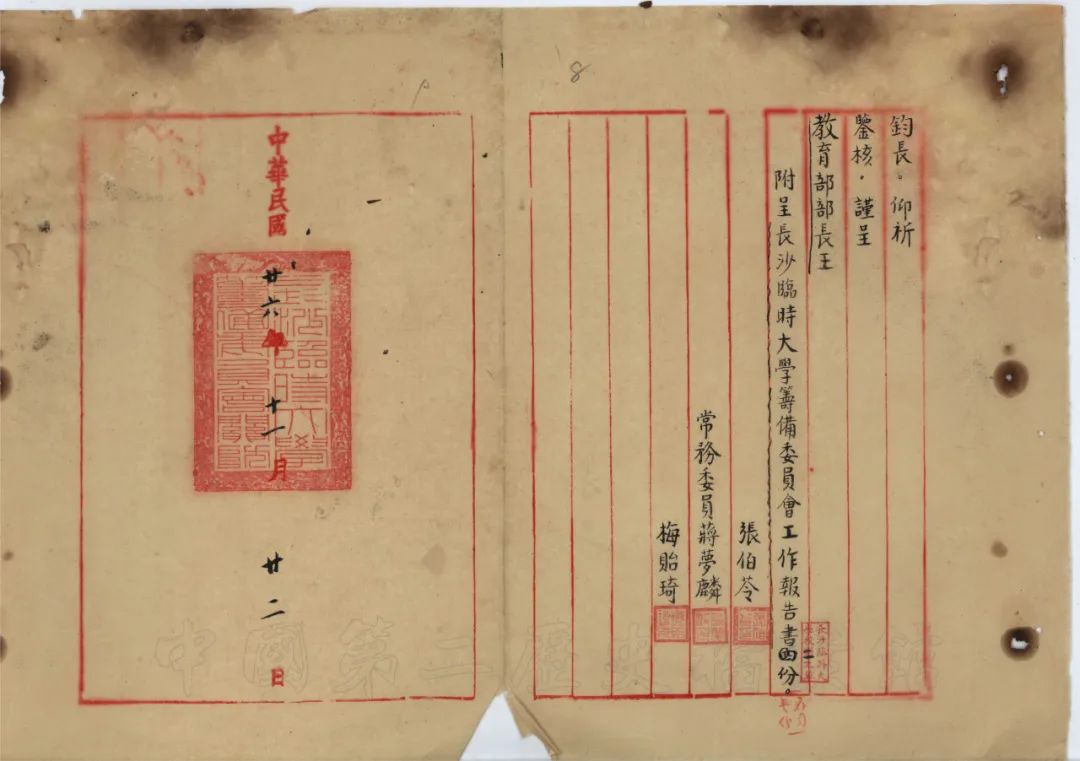 8
鈞長。仰祈
鑒核，謹呈
教育部部長王
附呈長沙臨時大學籌備委員會工作報告書四份。
張伯苓
常務委員蔣夢麟
梅貽琦
中華民國廿六年十一月廿二日
長沙臨時大學籌備委員會關防
中國第二歷史檔案館